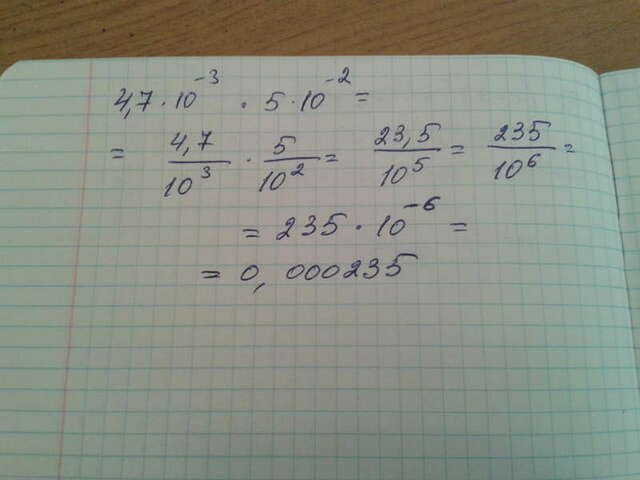 4,7 · 10⁻³ · 5 · 10⁻² =
= 4,7/10³ · 5/10² = 23,5/10⁵ = 235/10⁶ =
= 235 · 10⁻⁶ =
= 0,000235